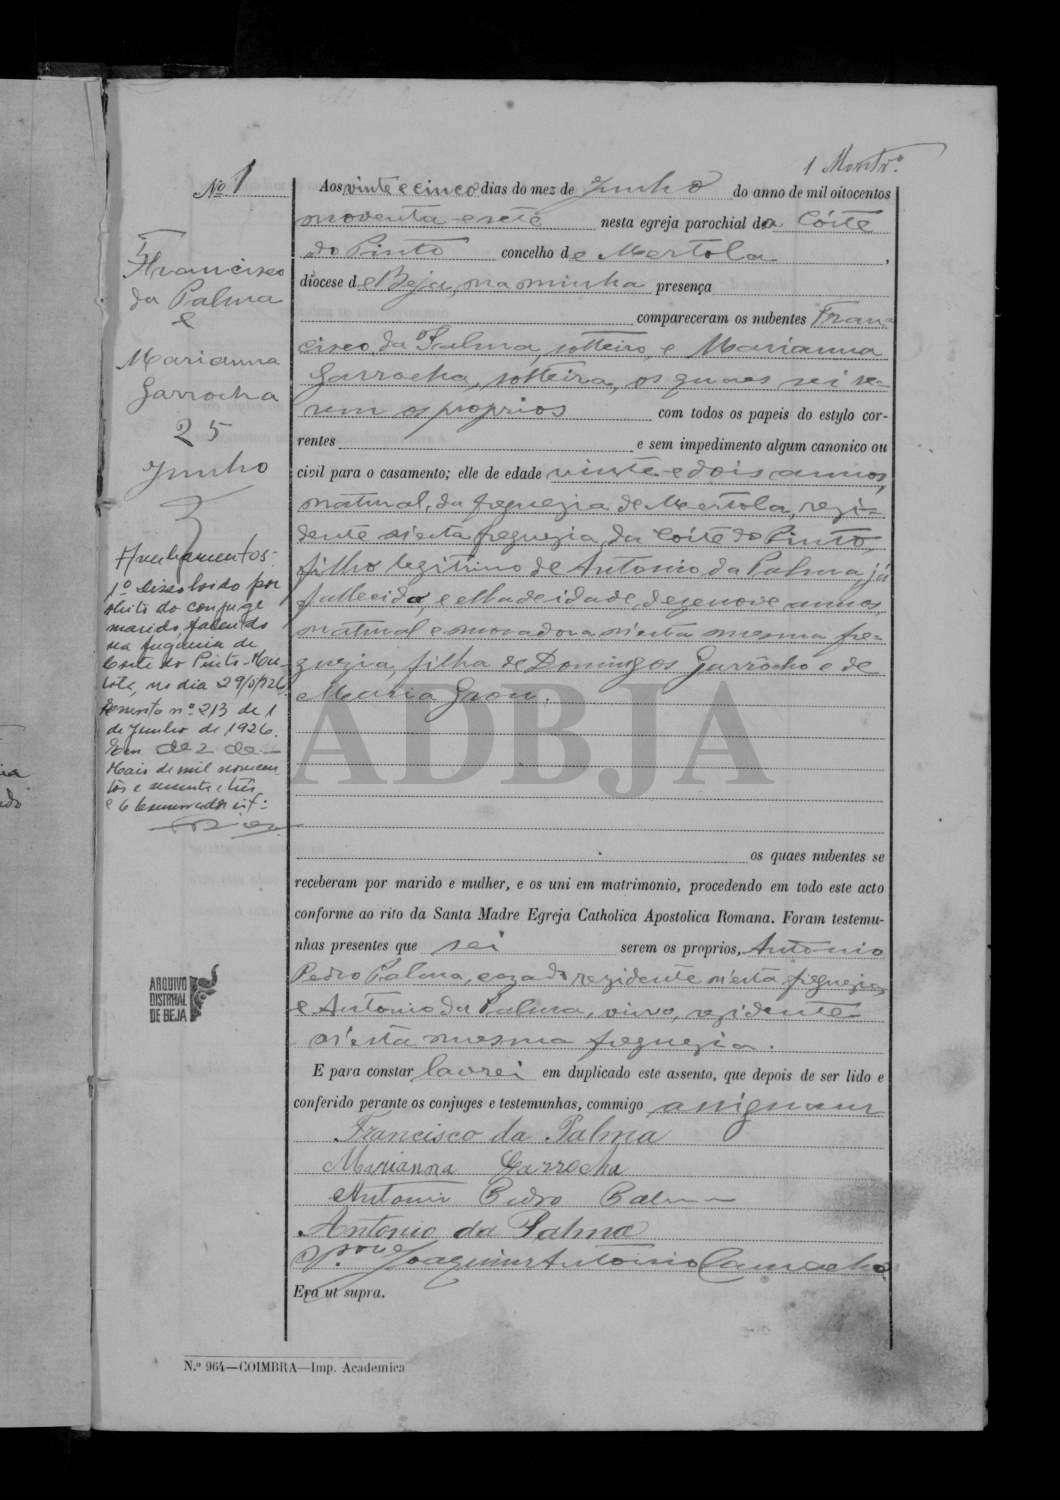 1 Montr.º
Nº 1
Aos vinte e cinco dias do mez de Junho do anno de mil oitocentos
noventa e sete nesta egreja parochial da Córte
do Pinto concelho de Mertola,
diocese de Beja, na minha presença
compareceram os nubentes Fran-
cisco da Palma, solteiro, e Marianna
Garrocha, solteira, os quaes sei se-
rem os proprios com todos os papeis do estylo cor-
rentes e sem impedimento algum canonico ou
civil para o casamento; elle de edade vinte e dois annos,
natural da freguezia de Mertola, rezi-
dente n'esta freguezia da Córte do Pinto,
filho legitimo de Antonio da Palma já
fallecido, e ella de idade dezenove annos,
natural e moradora n'esta mesma fre-
guezia, filha de Domingos Garrôcho e de
Maria Grou.
os quaes nubentes se
receberam por marido e mulher, e os uni em matrimonio, procedendo em todo este acto
conforme ao rito da Santa Madre Egreja Catholica Apostolica Romana. Foram testemu-
nhas presentes que sei serem os proprios, Antonio
Pedro Palma, cazado rezidente n'esta freguezia
e Antonio da Palma, viuvo, rezidente
n'esta mesma freguezia.
E para constar lavrei em duplicado este assento, que depois de ser lido e
conferido perante os conjuges e testemunhas, commigo assignam
Francisco da Palma
Marianna Garrocha
Antonio Pedro Palma
Antonio da Palma
O Joaquim Antonio Camacho
Era ut supra.
Francisco
da Palma
e
Marianna
Garrocha
25
Junho
Averbamentos:
1º Dissolvido por
obito do conjuge
marido falecido
na freguesia de
Corte do Pinto-Mer-
tola, no dia 29/5/926.
Assento nº 213 de 1
de Junho de 1926.
Em de 2 de
Maio de mil novecen-
tos e tres
ARQUIVO
DISTRITAL
DE BEJA
ADBJA
N.º 964—COIMBRA—Imp. Academica